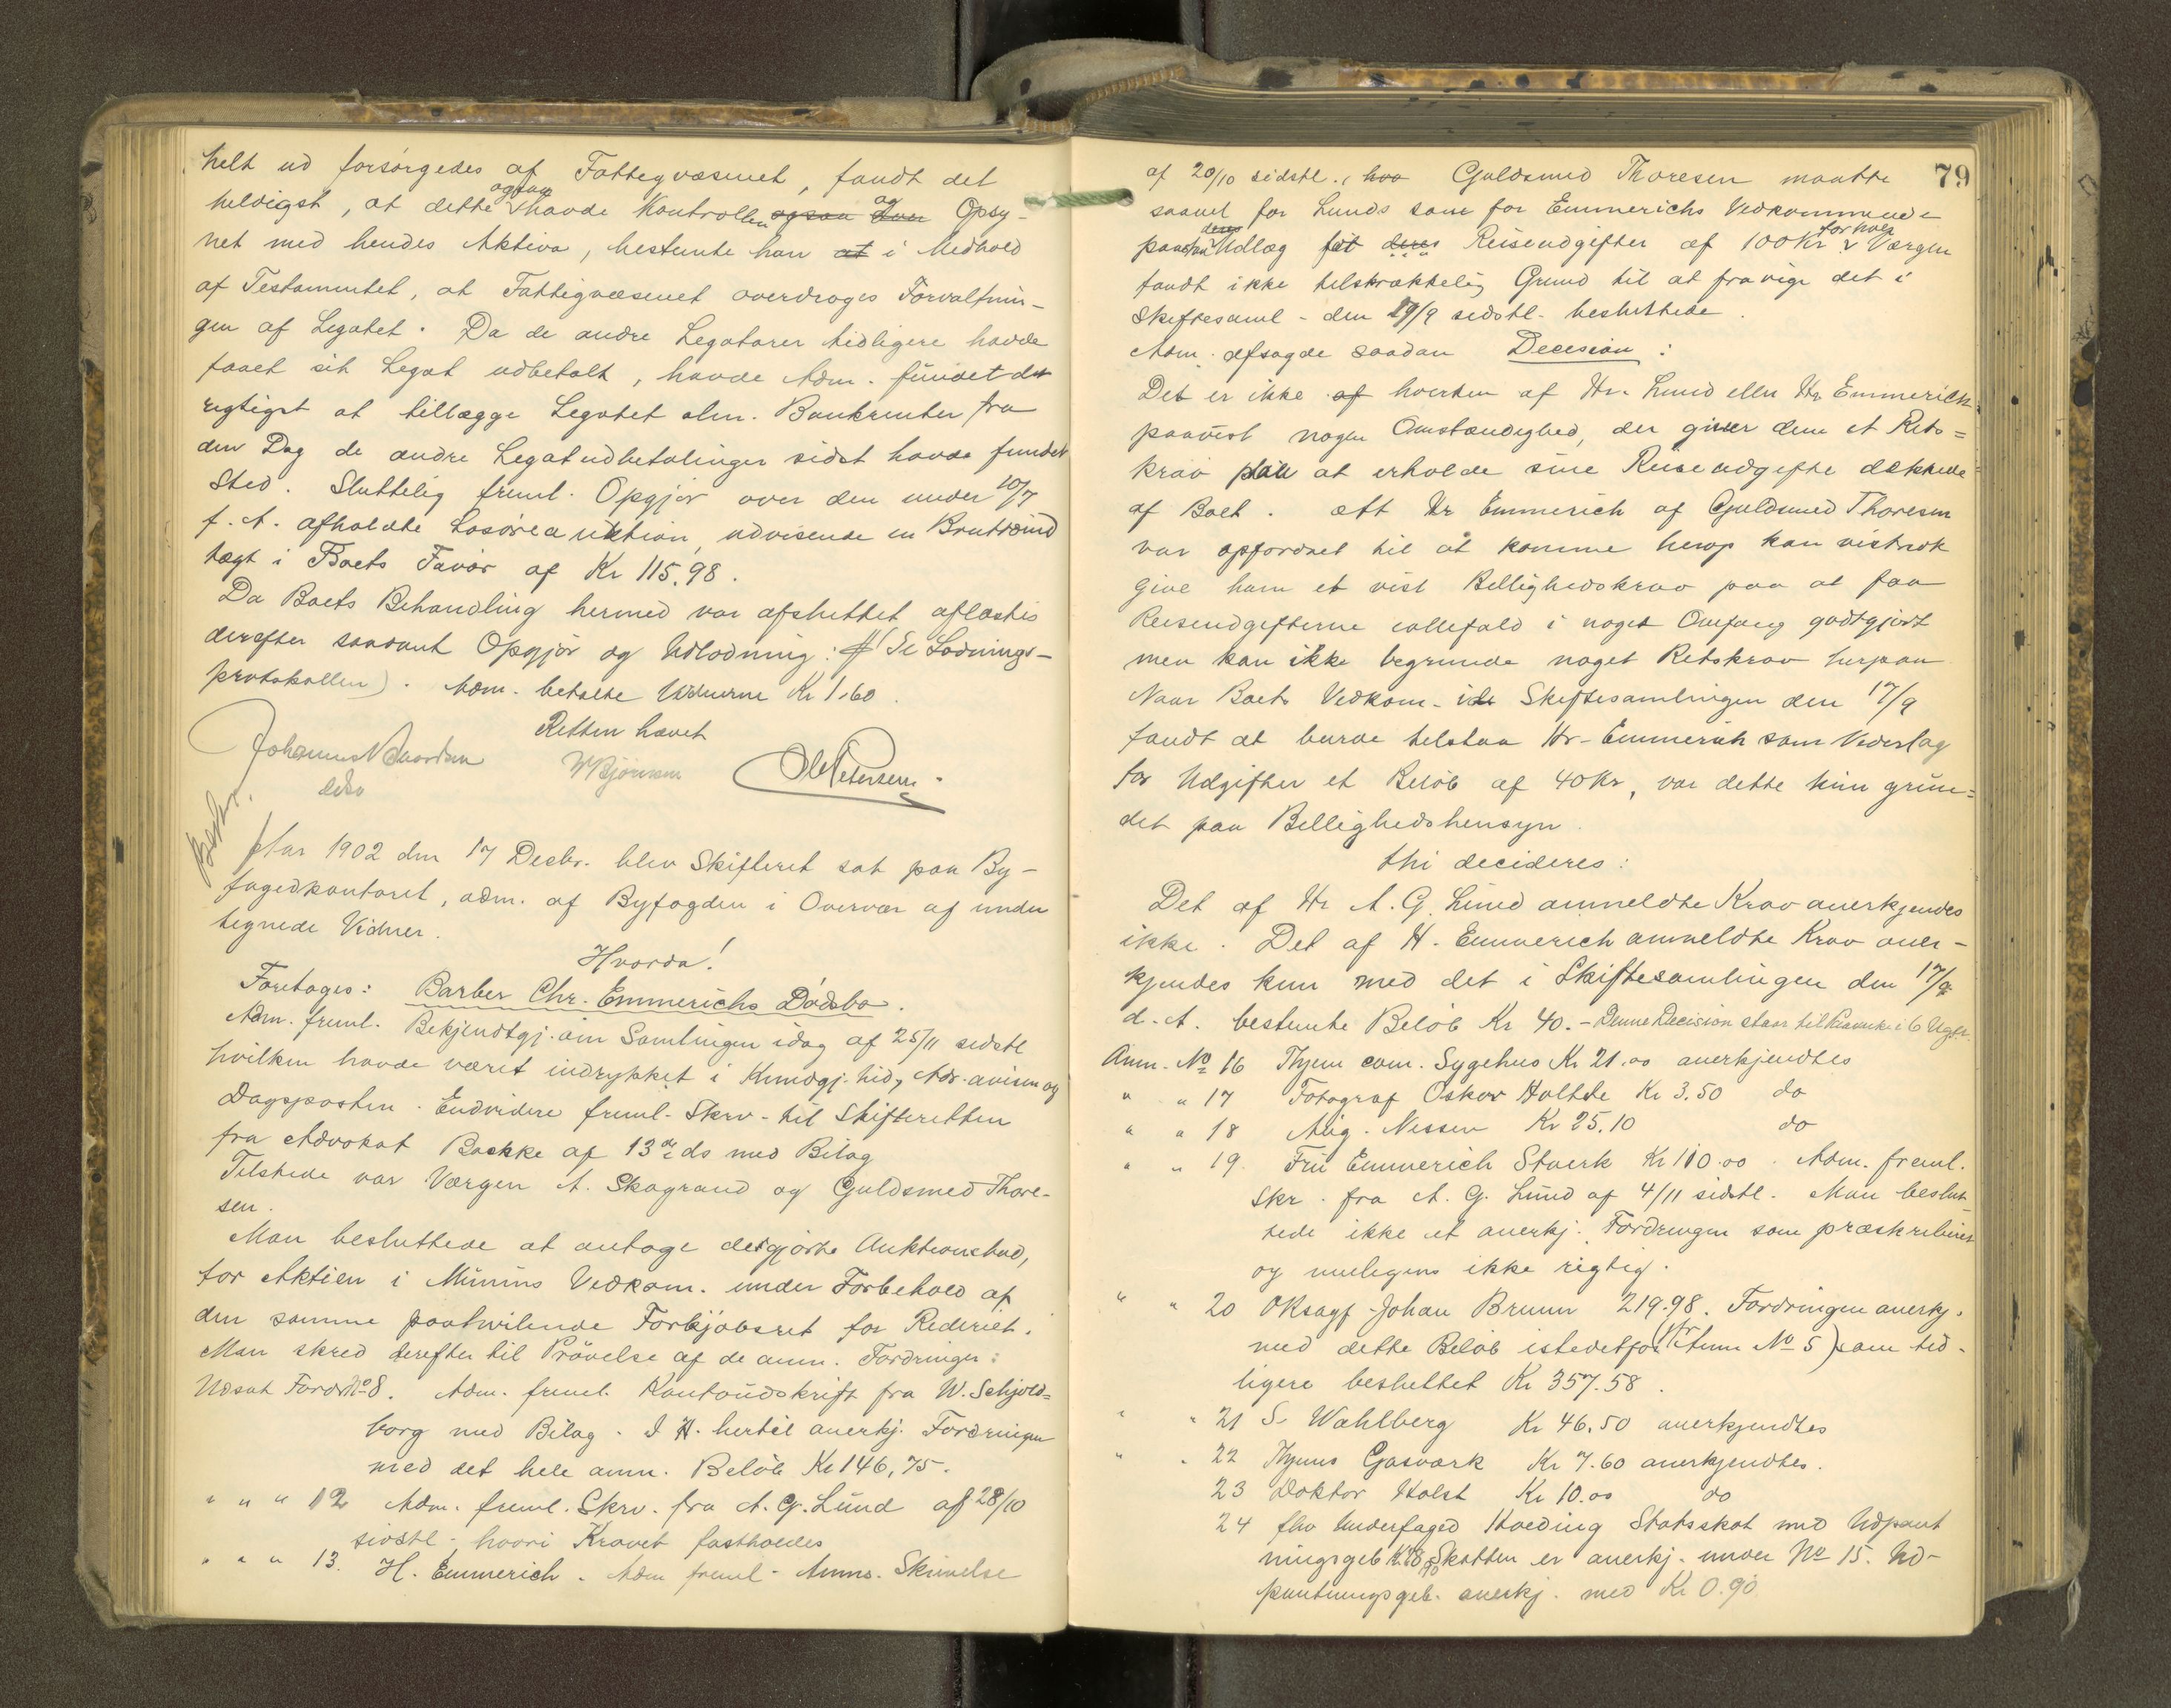 helt ud forsörgedes af Fattigvæsenet, fandt det
heldigst, at dette ogsaa havde Kontrollen ogsaa over og Opsy-
net med hendes Aktiva, bestemte han at i Medhold
af Testamentet, at Fattigvæsenet overdroges Forvaltnin-
gen af Legatet. Da de andre Legatarer tidligere havde
faaet sit Legat udbetalt, havde Adm. fundet det
rigtigst at tillægge Legatet alm. Bankrenter fra
den Dag de andre Legatudbetalinger sidst havde fundet
Sted. Sluttelig freml. Opgjör over den under 10/7
f. A. afholdte Lösöreauktion, udvisende en Bruttoind
tægt i Boets Favör af Kr 115.98.
Da Boets Behandling hermed var afsluttet aflæstes
derefter saadant Opgjör og Udlodning: (Se Lodnings-
protokollen). Adm. betalte Vidnerne Kr 1.60.
Retten hævet
Johannes
MBjörnsen
OlePetersen.
Aar 1902 den 17 Decbr. blev Skifteret sat paa By-
fogedkontoret, adm. af Byfogden i Overvær af under
tegnede Vidner.
Hvorda!
Foretoges: Barber Chr. Emmerichs Dödsbo.
Adm. freml. Bekjendtgj. om Samlingen idag af 25/11 sidstl
hvilken havde været indrykket i Kundgj. tid, Adr. avisen og
Dagsposten. Endvidere freml. Skrv. til Skifteretten
fra Advokat Backke af 13de ds med Bilag
Tilstede var Værgen A. Skagrand og Guldsmed Thore-
sen.
Man besluttede at antage det gjorte Auktionsbud,
for Aktien i Munins Vedkom. under Forbehold af
den samme paahvilende Forkjöbsret for Rederiet.
Man skred derefter til Prövelse af de anm. Fordringer:
Udsat Fordr No 8. Adm. freml. Kontoudskrift fra W. Schjold-
borg med Bilag. I H. hertil anerkj. Fordringen
med det hele anm. Belöb Kr 146,75.
" " " 12 Adm. freml. Skrv. fra A. G. Lund af 28/10
sidstl. hvori Kravet fastholdes
" " " 13. H. Emmerich. Adm freml. Anms. Skrivelse
79
af 20/10 sidstl., hvo Guldsmed Thoresen maatte
saavel for Lunds som for Emmerichs Vedkommende
paastaa deres Udlæg for deres Reiseudgifter af 100 Kr. forhver Værgen
fandt ikke tilstrækkelig Grund til at fravige det i
Skiftesaml. den 29/9 sidstl. besluttede.
Adm. afsagde saadan Decision:
Det er ikke af hverken af Hr. Lund eller Hr Emmerich
paavist nogen Omstændighed, der giver dem et Rets=
krav paa at erholde sine Reiseudgifte dækkede
af Boet. Att Hr Emmerich af Guldsmed Thoresen
var opfordret til at komme herop kan vistnok
give ham et vist Billighedskrav paa at faa
Reiseudgifterne iallefald i noget Omfang godtgjort
men kan ikke begrunde noget Retskrav herpaa
Naar Boets Vedkom. i Skiftesamlingen den 17/9
fandt at burde tilstaa Hr. Emmerich som Vederlag
for Udgifter et Belöb af 40 Kr, var dette kun grun=
det paa Billighedshensyn.
thi decideres:
Det af Hr A. G. Lund anmeldte Krav anerkjendes
ikke. Det af H. Emmerich anmeldte Krav aner-
kjendes kun med det i Skiftesamlingen den 17/9
d. A. bestemte Belöb Kr 40. - Denne Decision staar til Paaanke i 6 Uger.
Anm. No 16 Thjem com. Sygehus Kr 21.00 anerkjendtes
" " 17 Fotograf Oskar Hultde Kr 3.50 do
" " 18 Aug. Nissen Kr 25.10 do
" " 19. Fru Emmerich Stuerk Kr 110.00. Adm. freml.
Skr. fra A. G. Lund af 4/11 sidstl. Man beslut-
tede ikke at anerkj. Fordringen som præskriberet
og muligens ikke rigtig.
" " 20 ORsagf. Johan Bruun 219.98. Fordringen anerkj.
med dette Belöb istedetfor (Anm No 5) som tid-
ligere besluttet Kr 357.58.
" " 21 S. Wahlberg Kr 46.50 anerkjendtes
" " 22 Thjems Gasværk Kr 7.60 anerkjendtes.
23 Doktor Holst Kr 10.00 do
24 fhv Underfoged Hveding Statsskat med Udpant
ningsgeb. Skatten er anerkj. under No 15. Ud-
pantningsgeb. anerkj. med Kr 0.90.